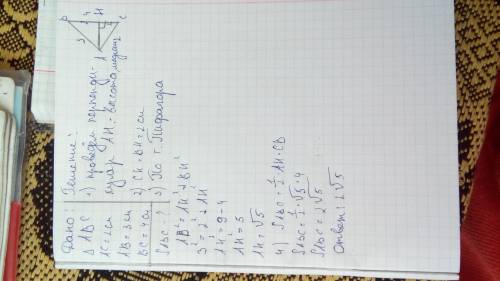 Дано:
Δ ABC
AC = 2см
AB = 3см
BC = 4см
SABC - ?
Решение:
1) проведём перпенди-
куляр AH - высота, медиана
2) CH = BH = 2см
3) По т. Пифагора
AB² = AH² + BH²
3² = 2² + AH²
AH² = 9 - 4
AH² = 5
AH = √5
4) SABC = 1/2 AH · CB
SABC = 1/2 · √5 · 4
SABC = 2√5
Ответ: 2√5
B
3
4
H
A
2
C